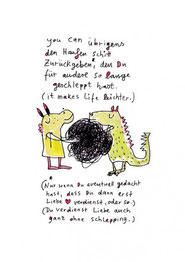 you can übrigens
den Haufen schitt
Zurückgeben*, den Du
für andere so lange
geschleppt hast.
(it makes Life leichter.)
*
(Nur wenn Du eventuell gedacht
hast, dass Du dann erst
Liebe ♥ verdienst, oder so.)
(Du verdienst Liebe auch
ganz ohne schlapping.)